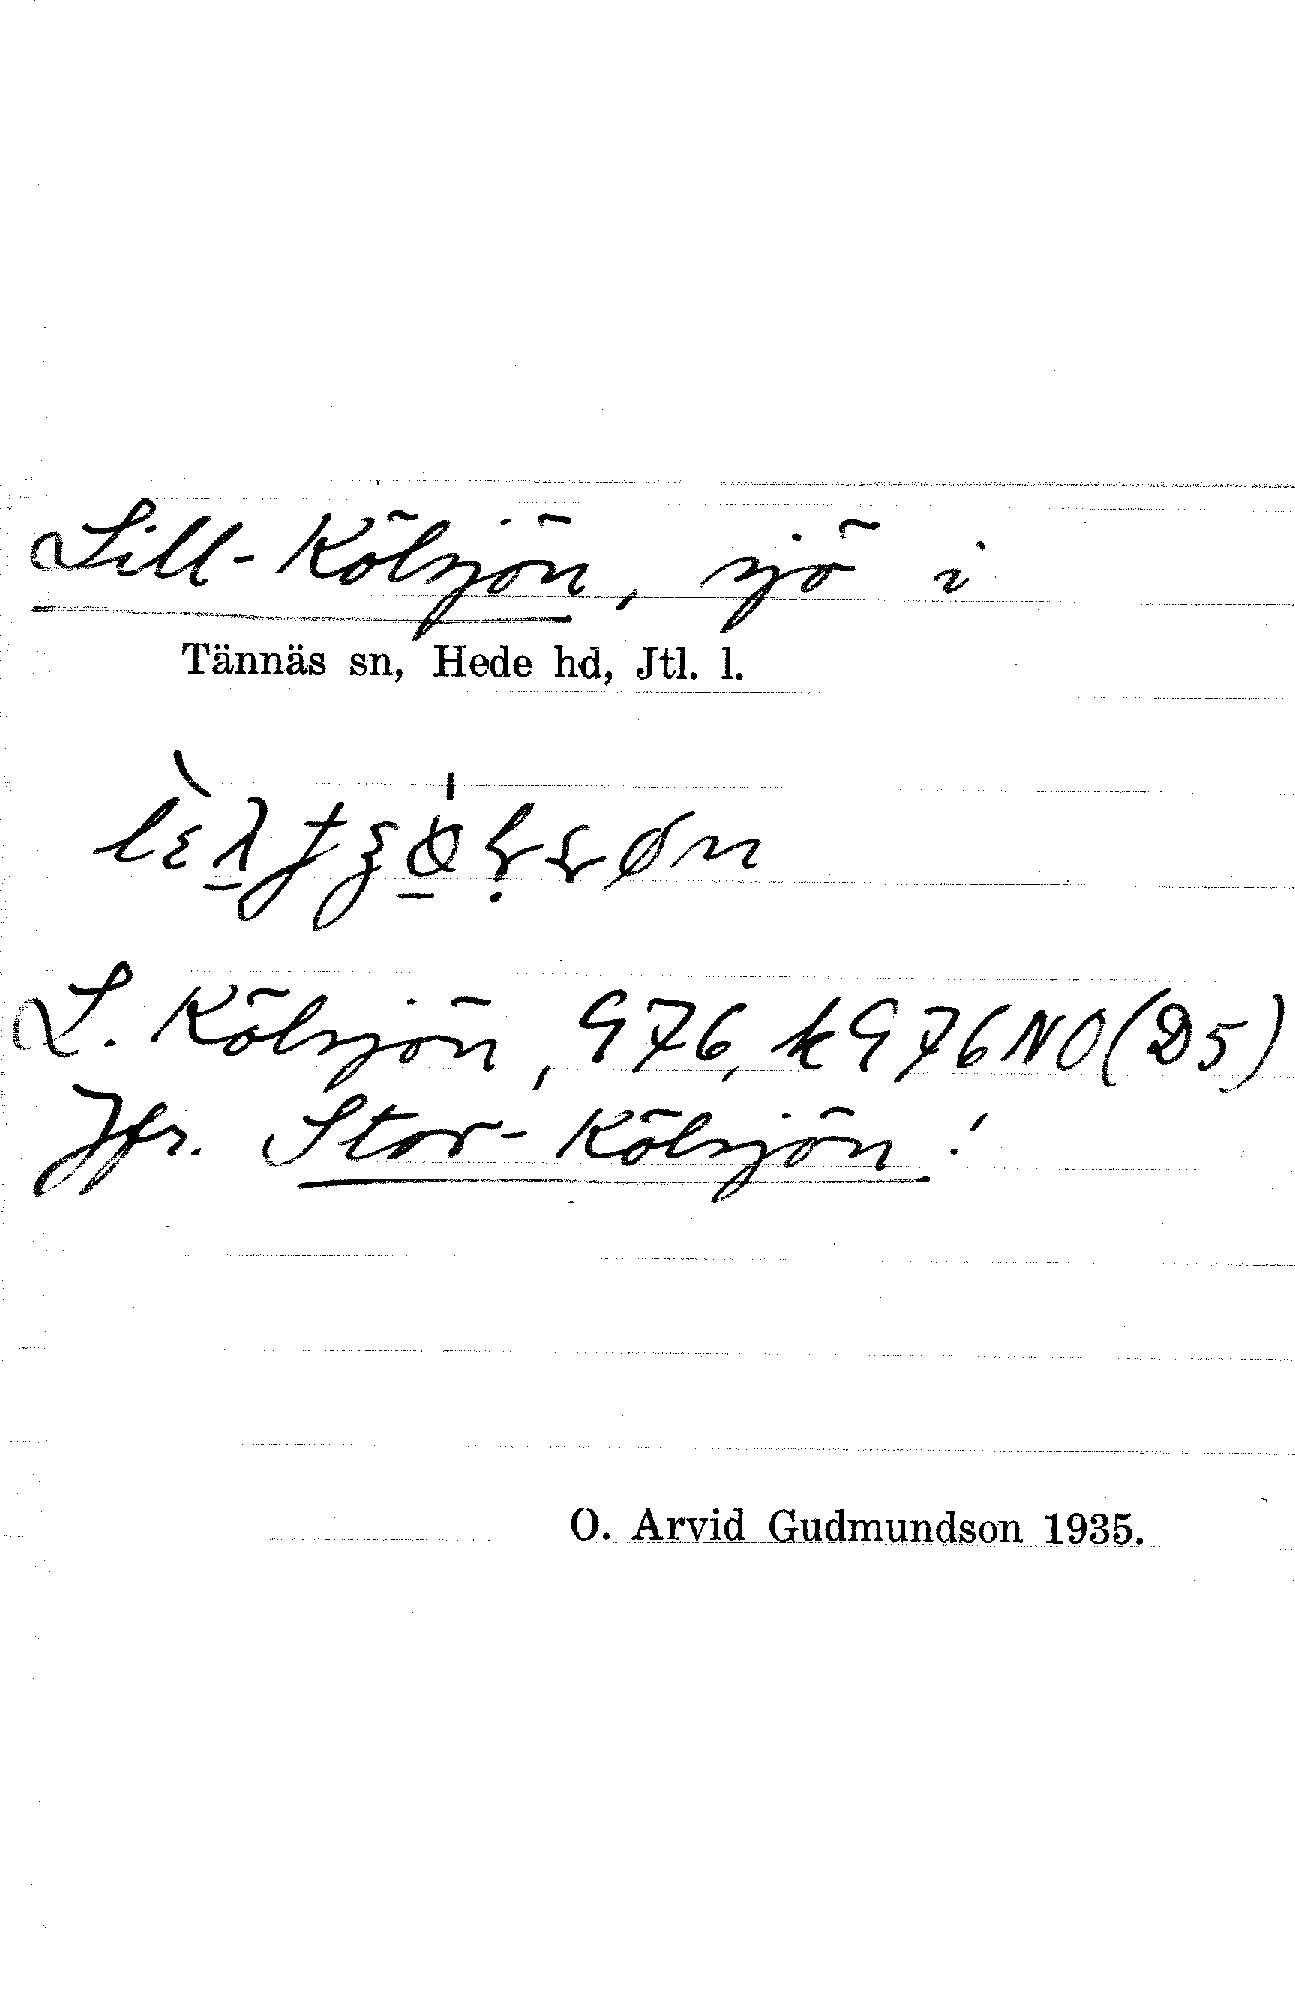 Lill-Kölsjön, sjö i
Tännäs sn, Hede hd, Jtl. l.
L. Kölsjön, G76, k G76NO(D5)
Jfr. Stor-Kölsjön!
O. Arvid Gudmundson 1935.